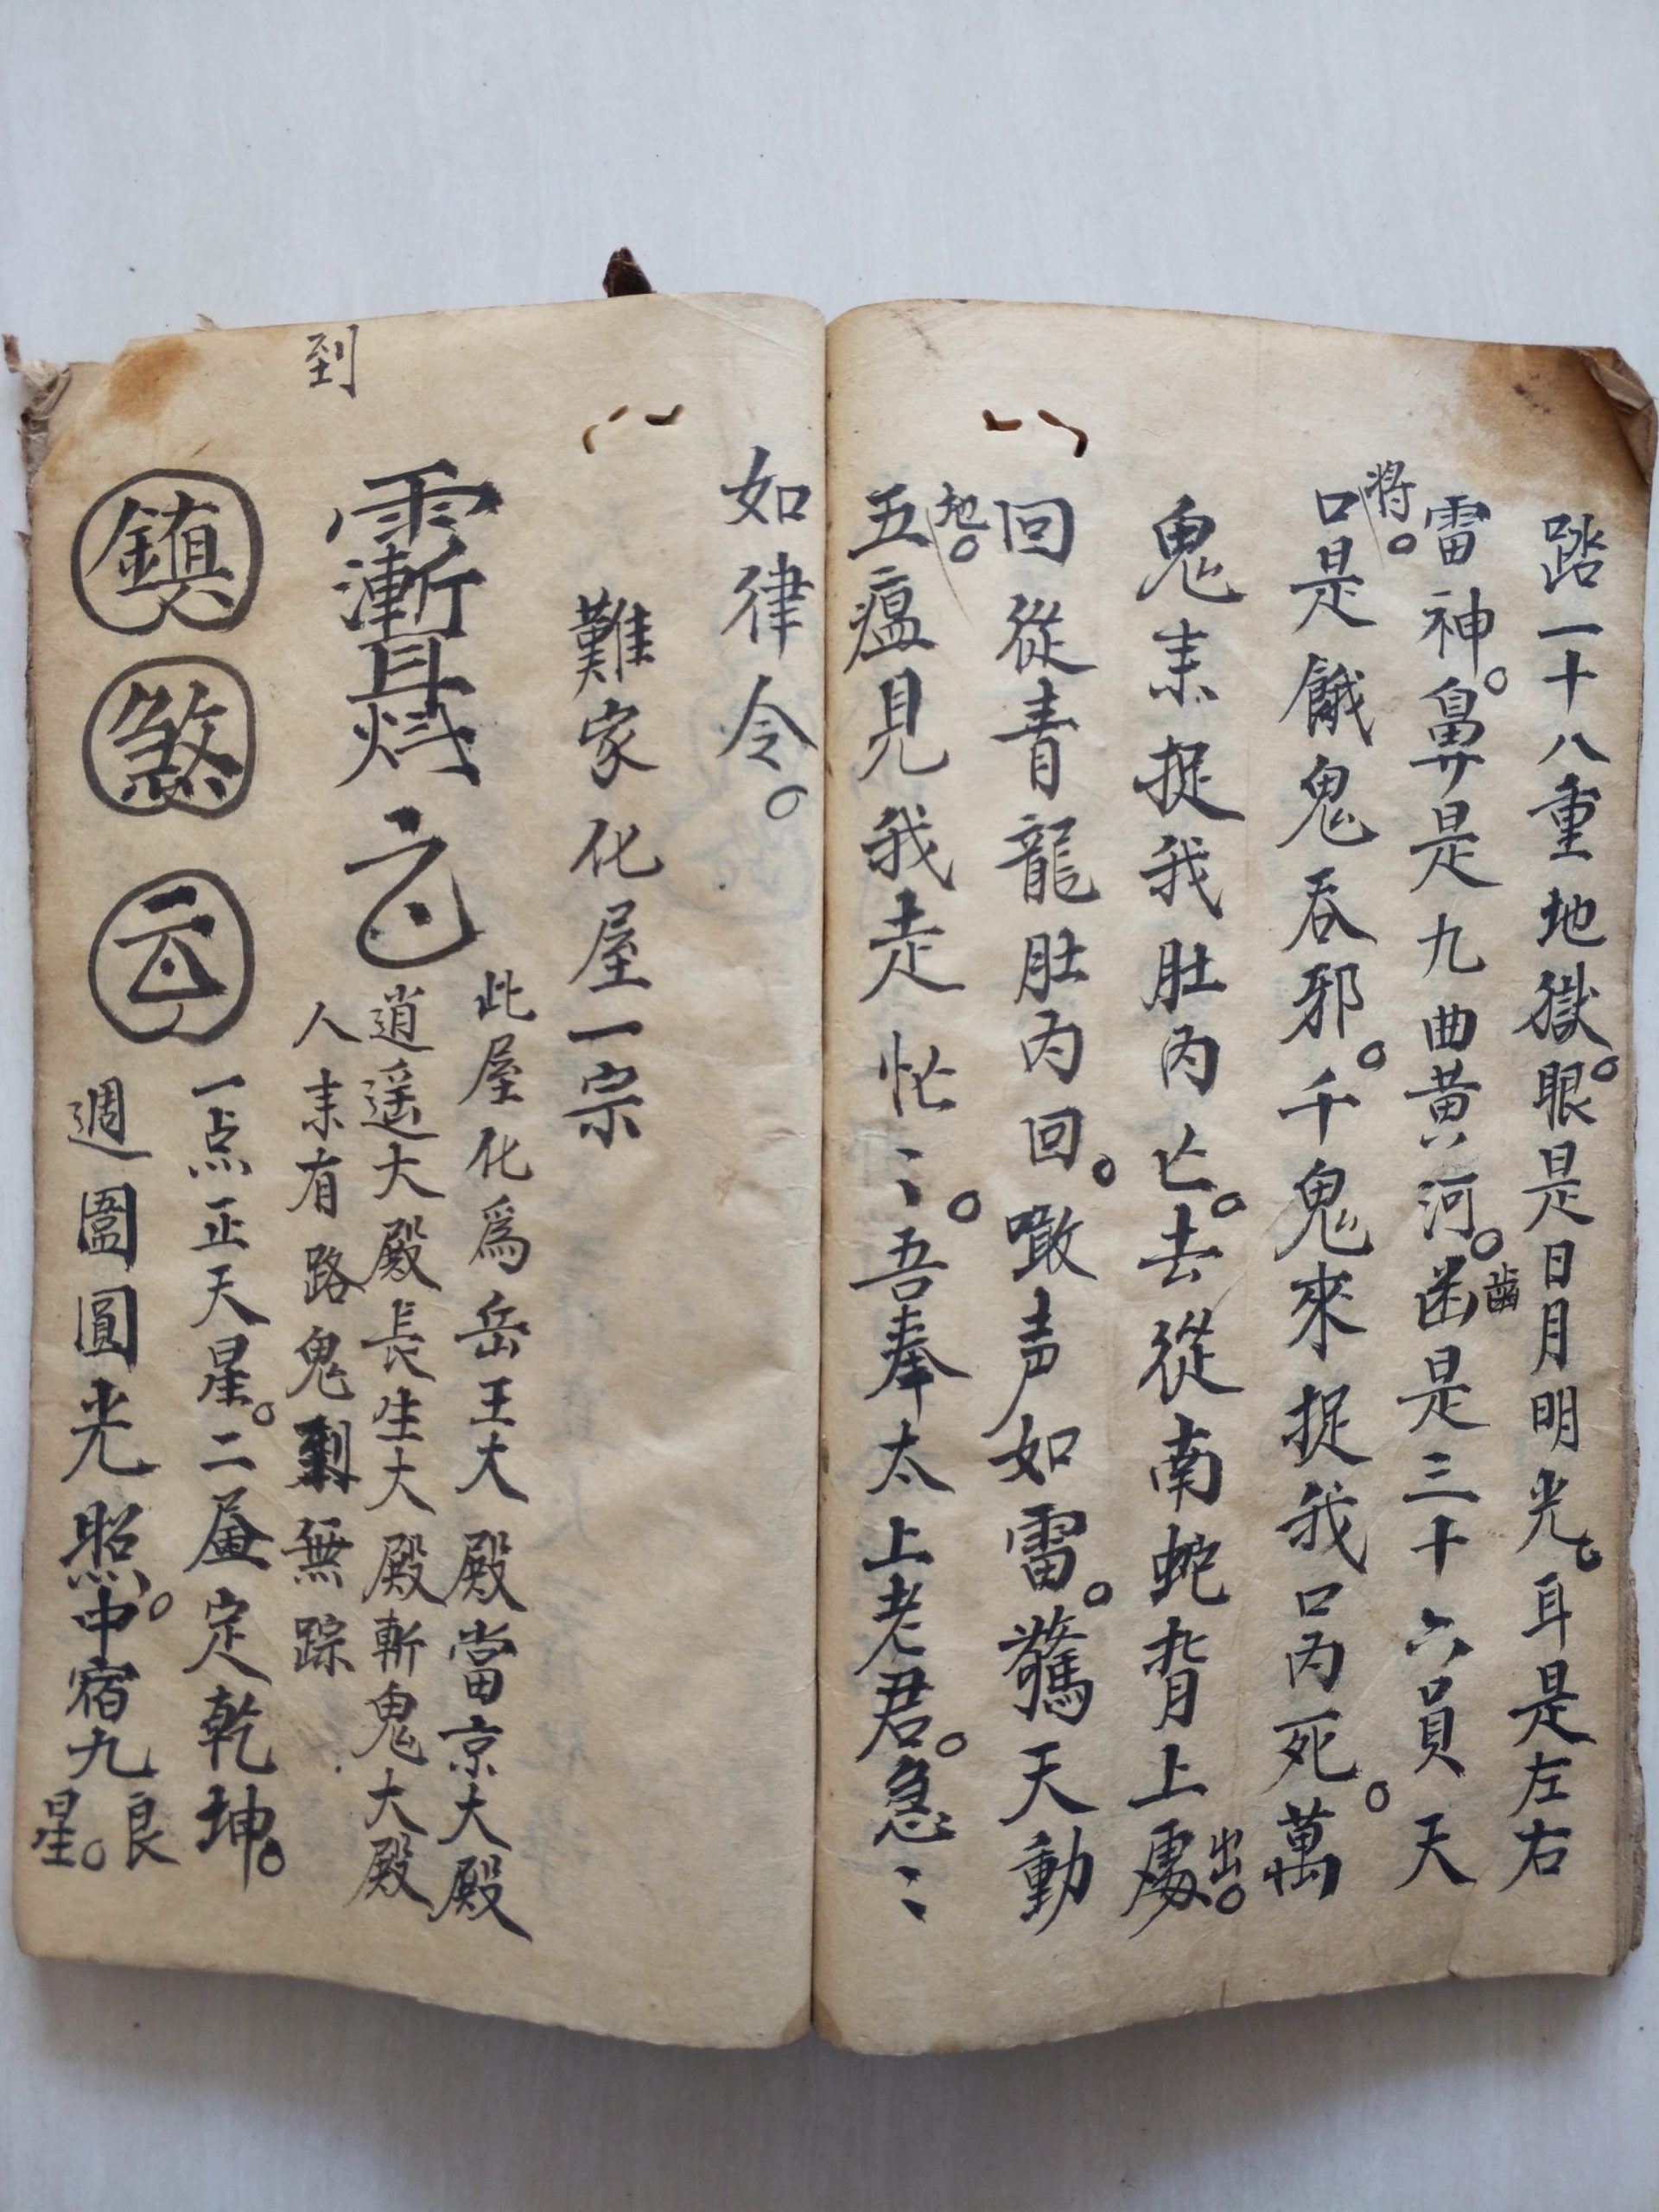 踏一十八重地獄。眼是日月明光。耳是左右
雷神。鼻是九曲黄河。齒是三十六員天
將。
口是餓鬼吞邪。千鬼來捉我口内死。萬
鬼耒捉我肚内亡。去從南蛇背上處出。
回從青龍肚内回。噉声如雷。驚天動
地。
五瘟見我走忙〻。吾奉太上老君。急〻
如律令。
難家化屋一宗
此屋化爲岳王大殿當京大殿
逍遥大殿長生大殿斬鬼大殿
人耒有路鬼到無踪
到
鎮煞
一点正天星。二屋定乾坤。
週圍圓光照。中宿九良星。